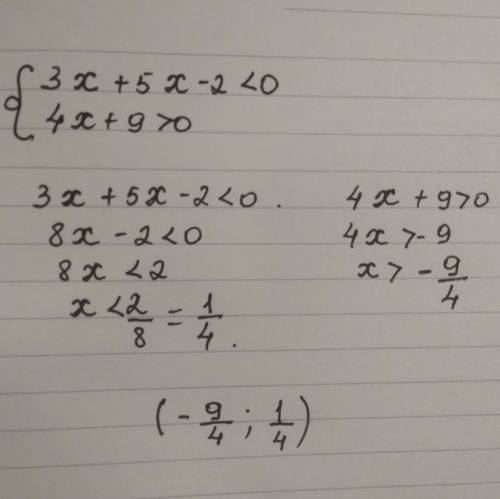 { 3x + 5x - 2 < 0
4x + 9 > 0
3x + 5x - 2 < 0 .
8x - 2 < 0
8x < 2
x < 2/8 = 1/4 .
4x + 9 > 0
4x > - 9
x > - 9/4
( - 9/4 ; 1/4 )